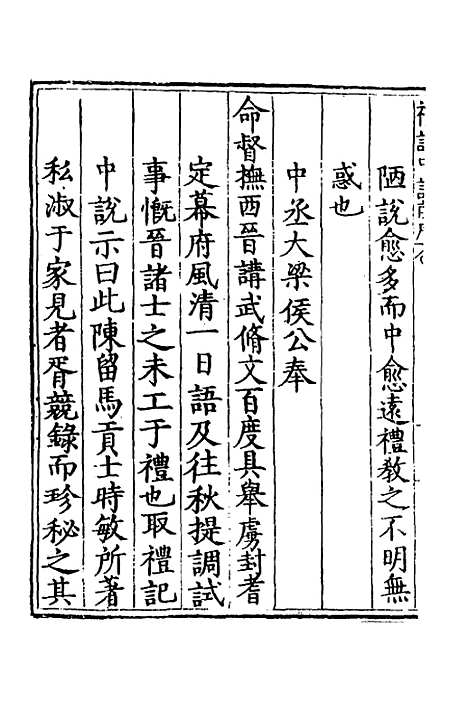 陋說愈多而中愈遠禮教之不明無
惑也
中丞大梁侯公奉
命督撫西晉講武脩文百度具舉虜封耆
定幕府風清一日語及往秋提調試
事慨晉諸士之未工于禮也取禮記
中說示曰此陳留馬貢士時敏所著
私淑于家見者胥競錄而珍秘之其